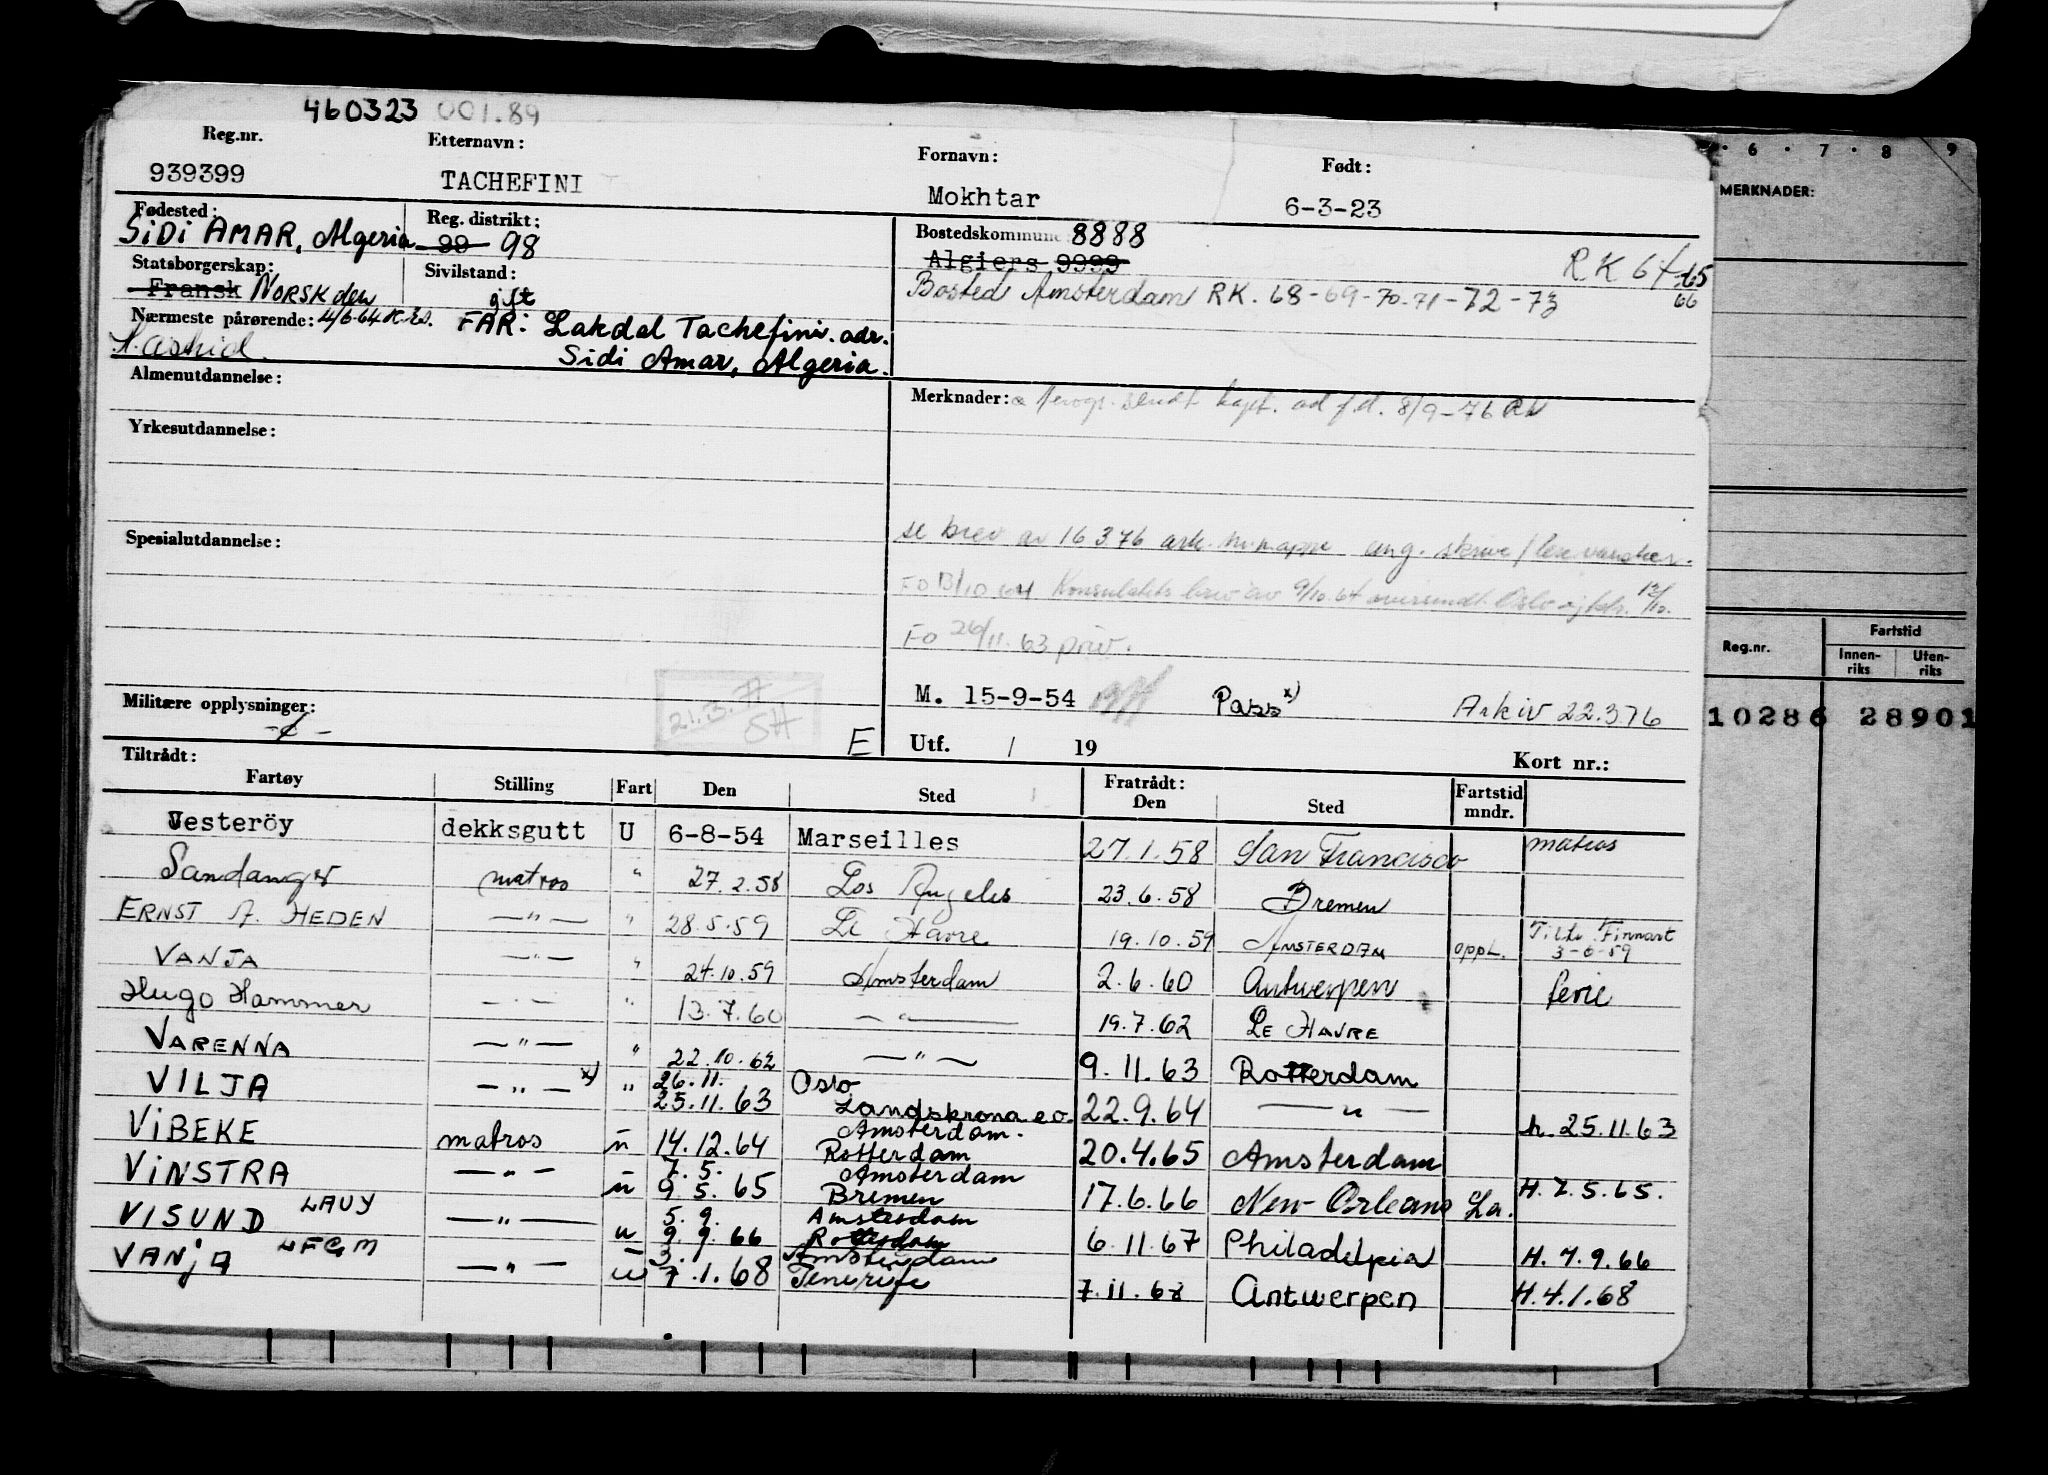 460323 001.89
Reg.nr. Etternavn: Fornavn: Født:
939399 TACHEFINI Mokhtar 6-3-23
Fødested: Reg. distrikt: Bostedskommune: 8888
SiDi AMAR, Algeria 99 98 Algiers 9999
Statsborgerskap: Sivilstand: RK 64-65
66
Fransk NORSK den gift Bosted Amsterdam RK. 68-69-70-71-72-73
Nærmeste pårørende: 4/6-64 FAR: Lakdal Tachefini. adr.
Sidi Amar, Algeria.
Almenutdannelse: Merknader: sendt 8/9-76
Yrkesutdannelse:
Spesialutdannelse: se brev av 16 3 76 ark. ang. skrive/lese vansker.
FO 13/10 64 Konsulatets brev av 9/10.64 oversendt Oslo 12/10.
FO 26/11.63 priv.
M. 15-9-54 Pass x) Arkiv 22.376
Militære opplysninger: 21.3.77 SH
E Utf. / 19 Kort nr.:
Tiltrådt: Fratrådt:
Fartøy Stilling Fart Den Sted Den Sted Fartstid mndr.
Vesteröy dekksgutt U 6-8-54 Marseilles 27.1.58 San Francisco matros
Sandanger matros " 27.2.58 Los Angeles 23.6.58 Bremen
ERNST A. HEDEN —"— " 28.5.59 Le Havre 19.10.59 AMSTERDAM oppl. Tiltr. Finnart 3-6-59
VANJA —"— " 24.10.59 Amsterdam 2.6.60 Antwerpen ferie
Hugo Hammer —"— " 13.7.60 —"— 19.7.62 LE HAVRE
VARENNA —"— " 22.10.62 —"— 9.11.63 Rotterdam
VILJA —"— x) " 26.11. 25.11.63 Oslo Landskrona e.o. 22.9.64 —"— h. 25.11.63
VIBEKE matros u 14.12.64 Amsterdam. Rotterdam 20.4.65 Amsterdam
VINSTRA —"— u 7.5. 9.5.65 Amsterdam Bremen 17.6.66 New Orleans La. H. 7.5.65.
VISUND LAUY —"— u 5.9. 9.9.66 Amsterdam Rotterdam 6.11.67 Philadelpia H. 7.9.66
VANJA LFGM —"— u 3. 7.1.68 Amsterdam Tenerife 7.11.68 Antwerpen H. 4.1.68
6 . 7 . 8 9
MERKNADER:
Reg.nr. Fartstid
Innen-riks Uten-riks
10286 28901